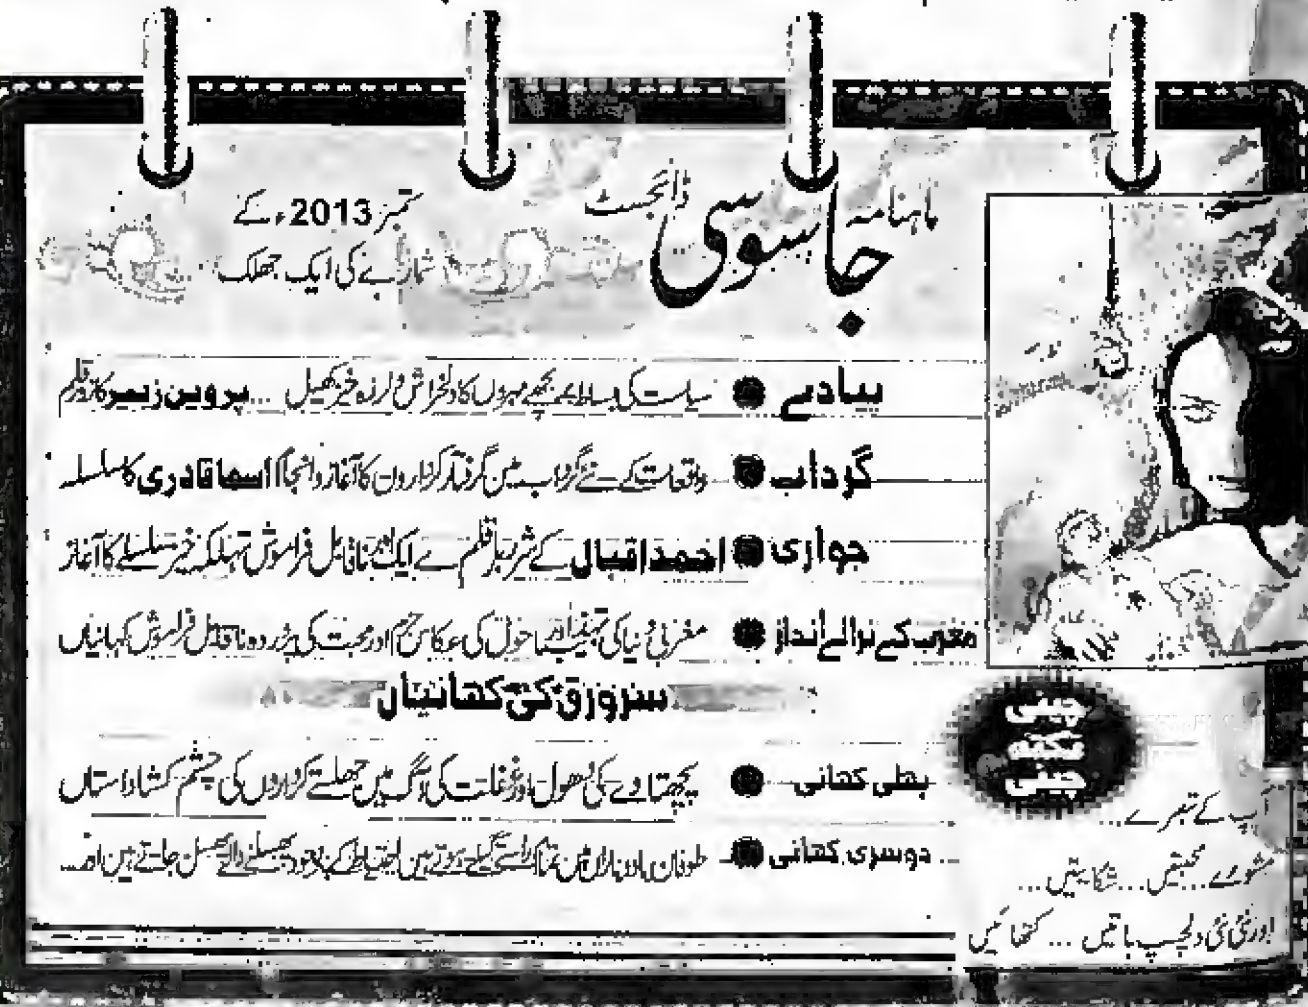 ماہنامہ جاسوسی ڈائجسٹ
ستمبر 2013ء کے
شمارے کی ایک جھلک
پیادے ● سیاست کی بساط پہ بچھے مہروں کا دلخراش و لرزہ خیز کھیل ... پروین زبیر کا زور قلم
گرداب ● واقعات کے نئے گرداب میں گرفتار کرداروں کا آغاز و انجام اسما قادری کا سلسلہ
جواری ● احمد اقبال کے شرر بار قلم سے ایک اور ناقابل فراموش تہلکہ خیز سلسلے کا آغاز
مغرب کے نرالے انداز ● مغربی دنیا کی تہذیب اور ماحول کی عکاس جرم اور محبت کی پر درد ناقابل فراموش کہانیاں
سرورق کی کہانیاں
پہلی کہانی ● پچھتاوے کی بھول اور غفلت کی آگ میں جھلستے کرداروں کی چشم کشا داستاں
دوسری کہانی ● طوفان باد و باراں میں تمام راستے گیلے ہوتے ہیں احتیاط کے باوجود پھسلنے والے پھسل جاتے ہیں
چینی
نکتہ
چینی
آپ کے تبصرے ...
مشورے ... محبتیں ... شکایتیں ...
اور نئی نئی دلچسپ باتیں ... کتھائیں